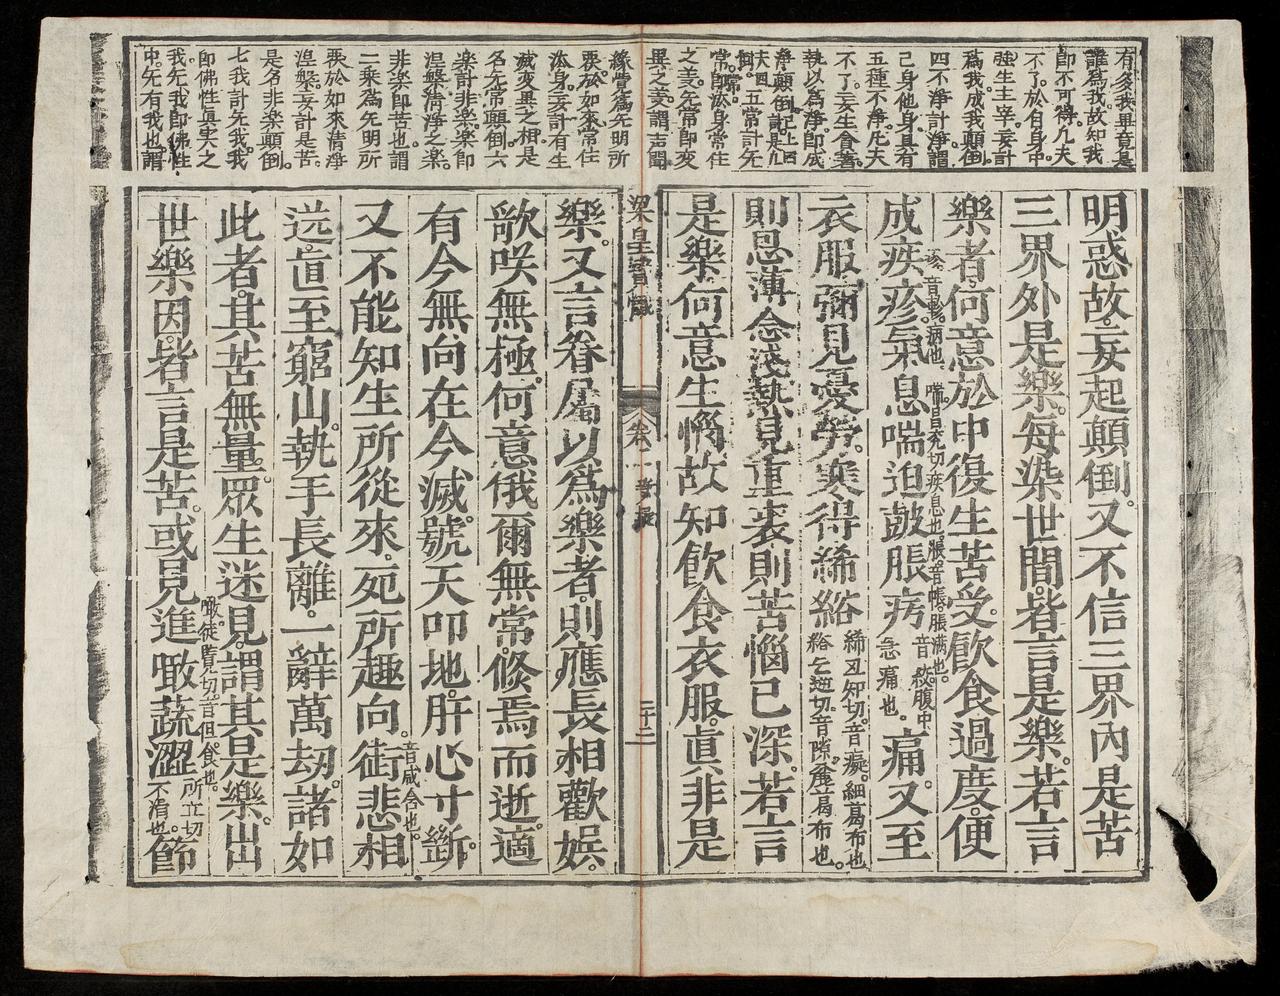 有多我畢竟是
誰爲我故知我
卽不可得凡夫
不了於自身中
強生主宰妄計
爲我成我顛倒
四不淨計淨謂
己身他身具有
五種不淨凡夫
不了妄生貪著
執以爲淨卽成
淨顛倒
常卽於身常住
之
異之
緣覺爲无明所
覆於如來常住
法身妄計有生
滅變異之相是
名无常顛倒六
樂計非樂樂卽
涅槃淸淨之樂
非樂卽苦也謂
二乘爲无明所
覆於如來淸淨
涅槃妄計是苦
是名非樂顛倒
七我計无我我
卽佛性眞实之
我无我卽佛性
中无有我也謂
明惑故妄起顛倒又不信三界內是苦
三界外是樂每染世間皆言是樂若言
樂者何意於中復生苦受飮食過度便
成疾疹氣息喘迫鼓脹㽲痛又至
衣服彌見憂勞寒得絺綌
絺丑知切音癡細葛布也
綌乞逆切音隙麤葛布也
則恩薄念淺熱見重裘則苦惱已深若言
是樂何意生惱故知飮食衣服眞非是
梁皇寶懺
卷一
二十二
樂又言眷屬以爲樂者則應長相歡娛
歌咲無極何意俄爾無常倏焉而逝適
有今無向在今滅號天叩地肝心寸斷
又不能知生所從來死所趣向銜悲相
音咸含也
送直至窮山執手長離一辭萬劫諸如
此者其苦無量眾生迷見謂其是樂出
世樂因皆言是苦或見進噉蔬澀
噉徒覽切音但食也
所立切
不滑也
節